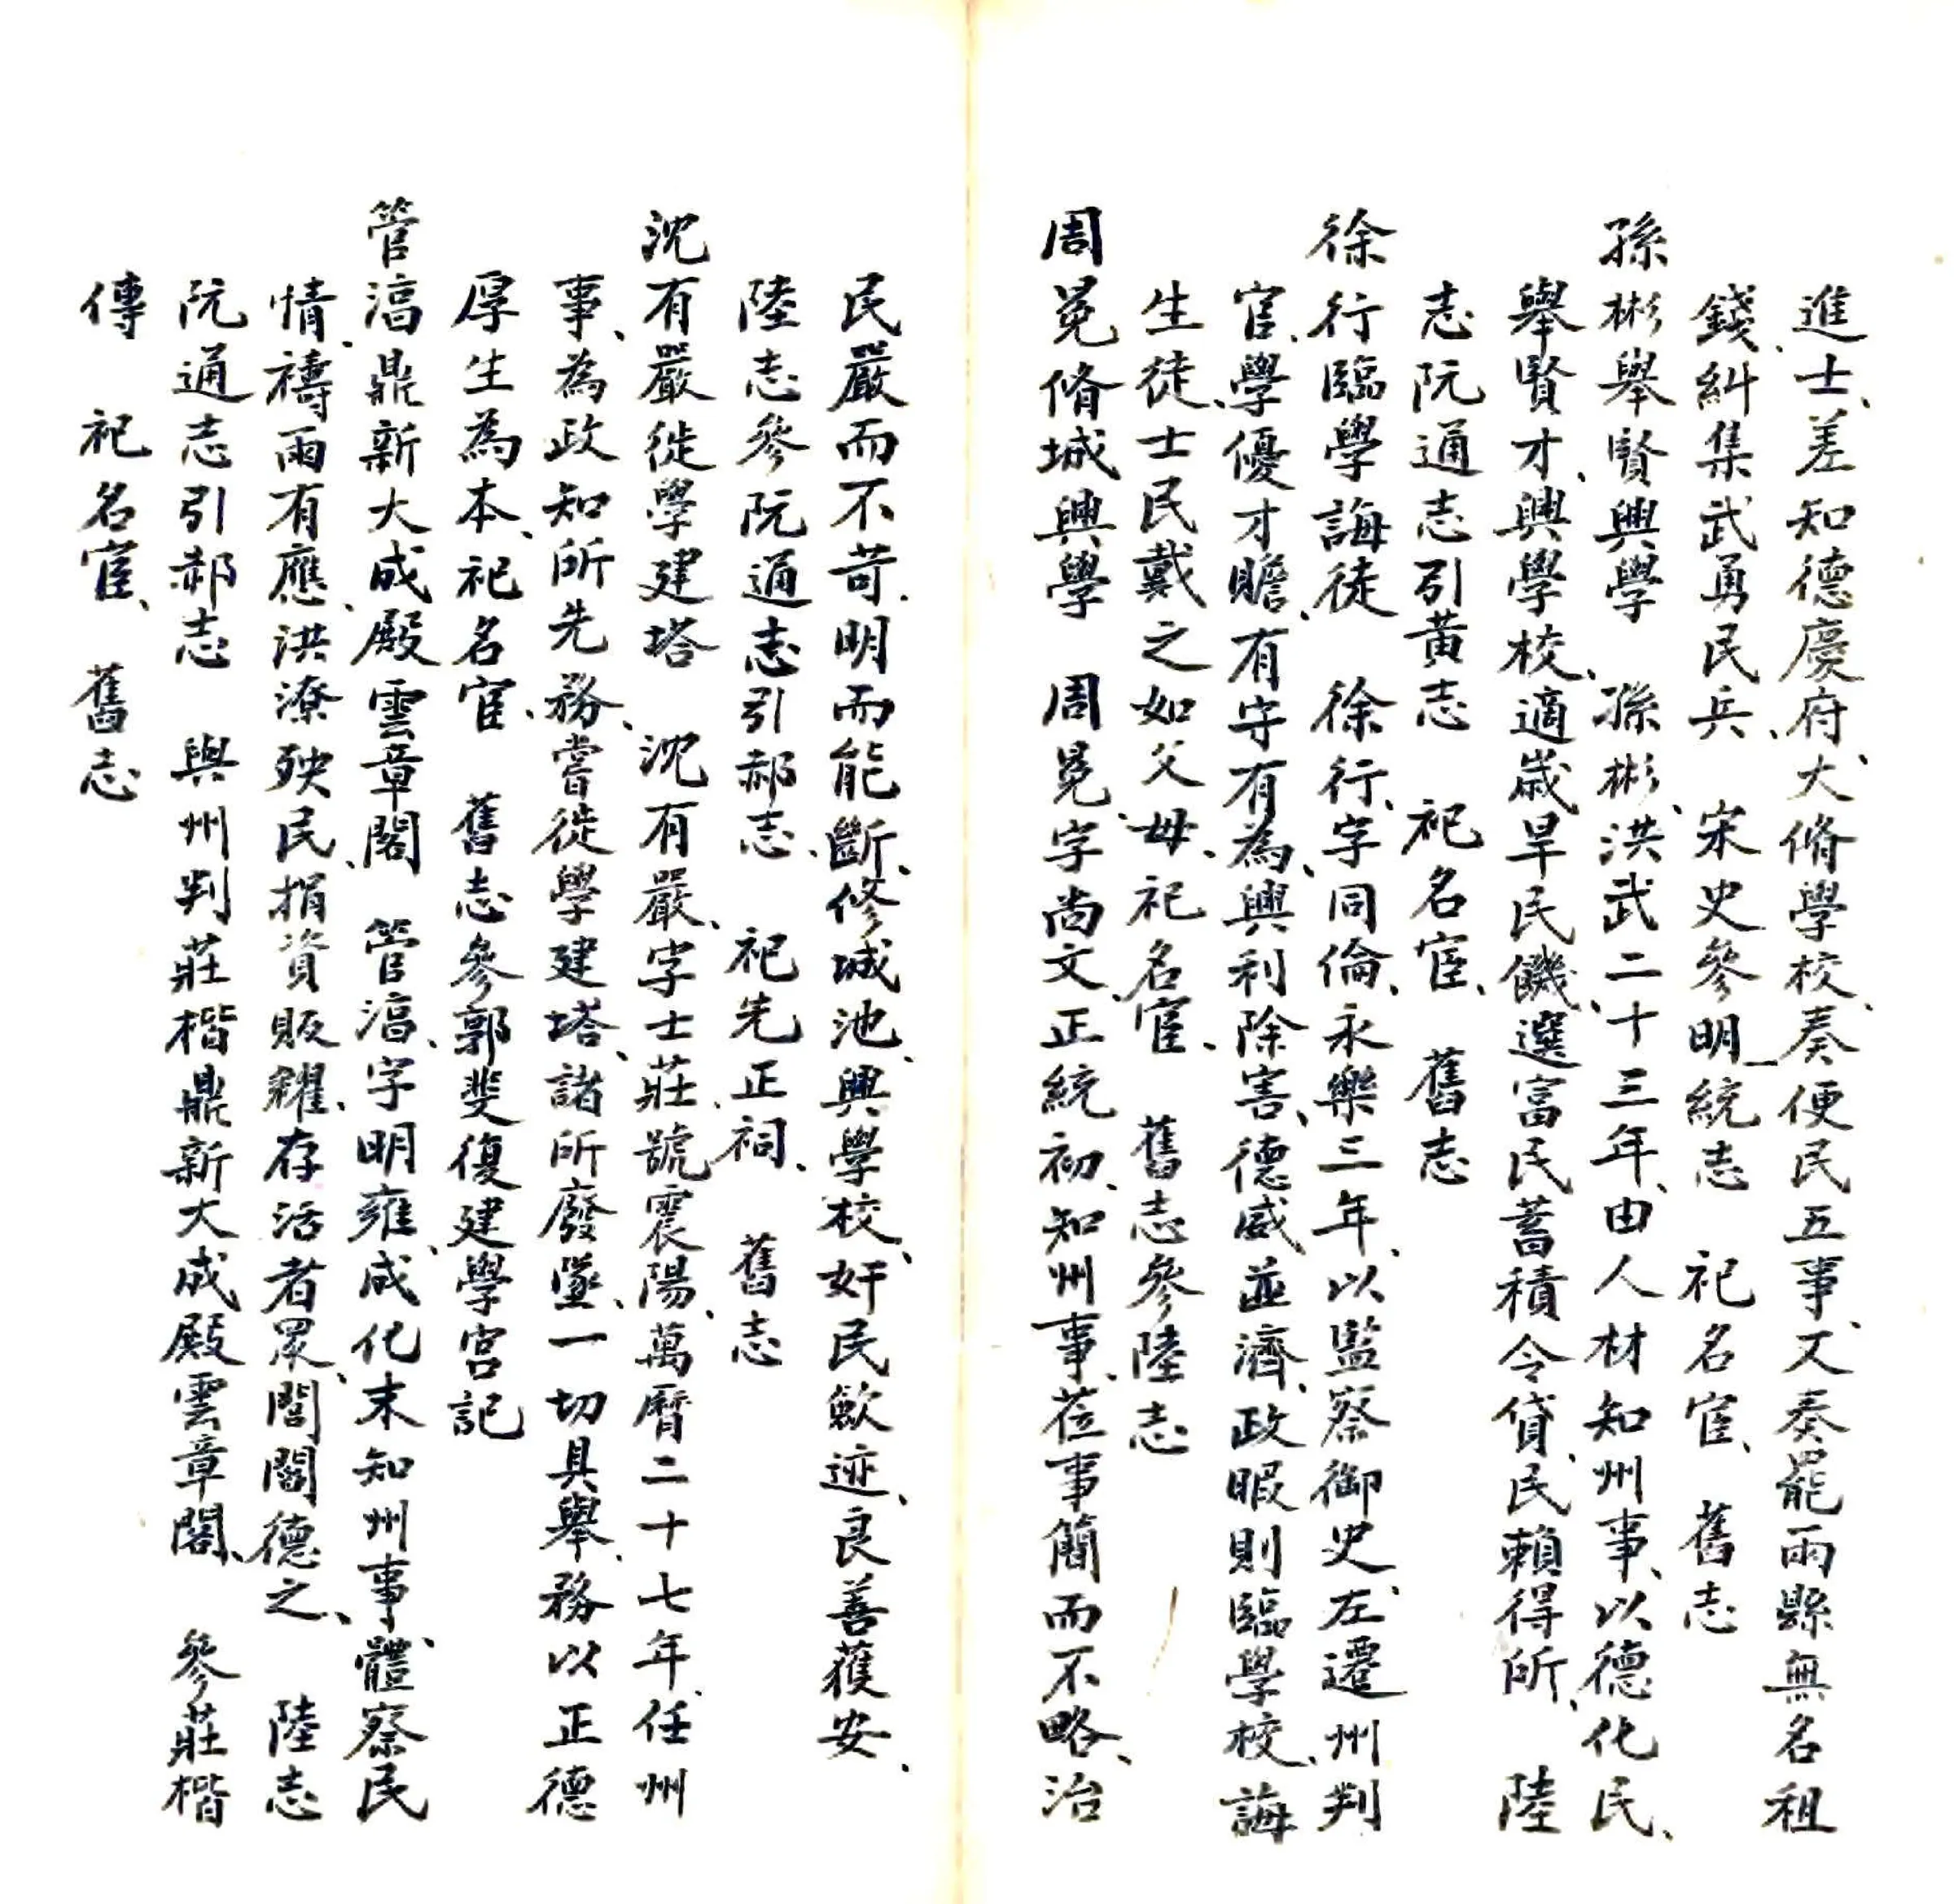 進士、差知德慶府、大脩學校、奏便民五事、又奏罷兩縣無名租
錢、糾集武勇民兵、　宋史參明一統志　祀名宦、　舊志
孫彬舉賢興學　孫彬、洪武二十三年、由人材知州事、以德化民、
舉賢才、興學校、適歲旱民饑、選富民蓄積令貸、民賴得所、　陸
志阮通志引黃志　祀名宦、　舊志
徐行臨學誨徒　徐行、字同倫、永樂三年、以監察御史、左遷州判
官、學優才贍、有守有為、興利除害、德威並濟、政暇則臨學校、誨
生徒、士民戴之如父母、祀名宦、　舊志參陸志
周冕脩城興學　周冕、字尚文、正統初、知州事、蒞事簡而不略、治
民嚴而不苛、明而能斷、修城池、興學校、奸民斂迹、良善獲安、
陸志參阮通志引郝志、　祀先正祠、　舊志
沈有嚴徙學建塔　沈有嚴、字士莊、號震陽、萬曆二十七年、任州
事、為政知所先務、嘗徙學建塔、諸所廢墜、一切具舉、務以正德
厚生為本、祀名宦、　舊志參郭棐復建學宮記
管滈鼎新大成殿雲章閣　管滈、字明雍、成化末知州事、體察民
情、禱雨有應、洪潦殃民、捐資販糶、存活者眾、閭閻德之、　陸志
阮通志引郝志　與州判莊楷鼎新大成殿雲章閣、　參莊楷
傳　祀名宦、　舊志